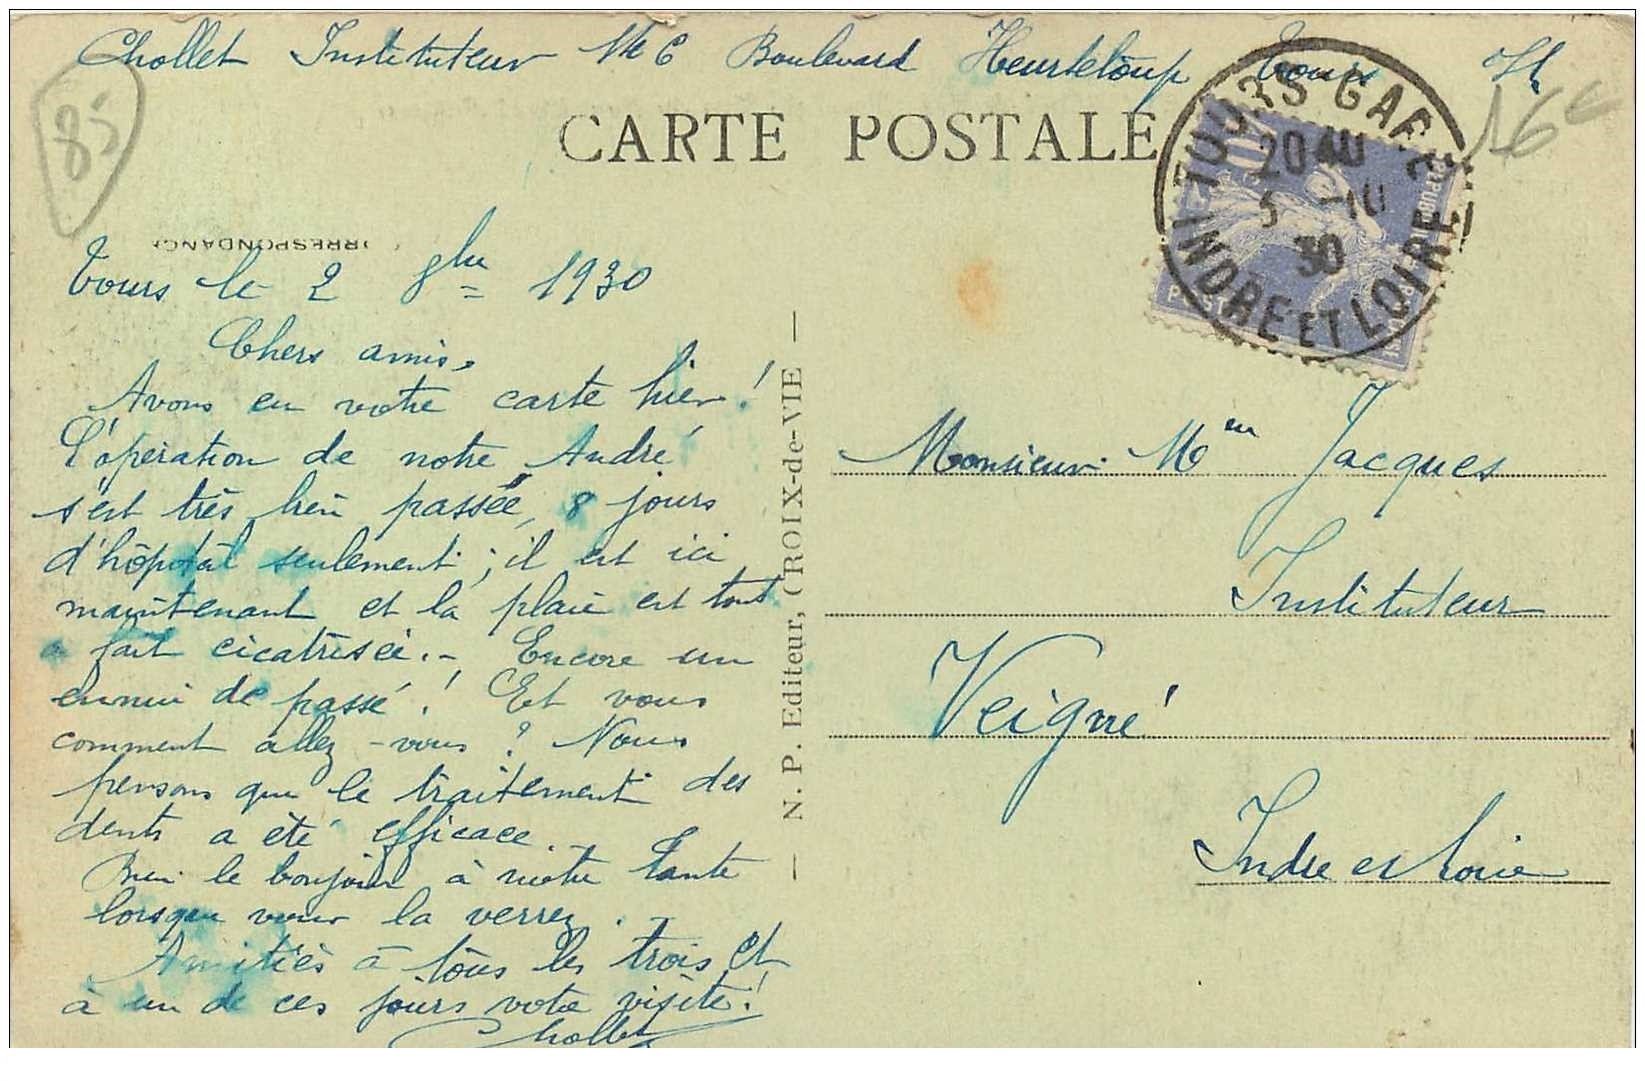 Chollet Instituteur Boulevard Heurteloup Tours
85
16 €
CARTE POSTALE
TOURS GARE
20
5 -10
30
INDRE ET LOIRE
POSTES
RRESPONDANC
Tours le 2 8bre 1930
Chers amis,
Avons eu votre carte hier !
L'opération de notre André
s'est très bien passée, 8 jours
d'hôpital seulement ; il est ici
maintenant et la plaie est tout
à fait cicatrisée. - Encore un
ennui de passé ! Et vous
comment allez-vous ? Nous
pensons que le traitement des
dents a été efficace.
Bien le bonjour à notre tante
lorsque vous la verrez.
Amitiés à tous les trois et
à un de ces jours votre visite !
Chollet
— N. P. Editeur, CROIX-de-VIE —
Monsieur Jacques
Instituteur
Veigné
Indre et Loire